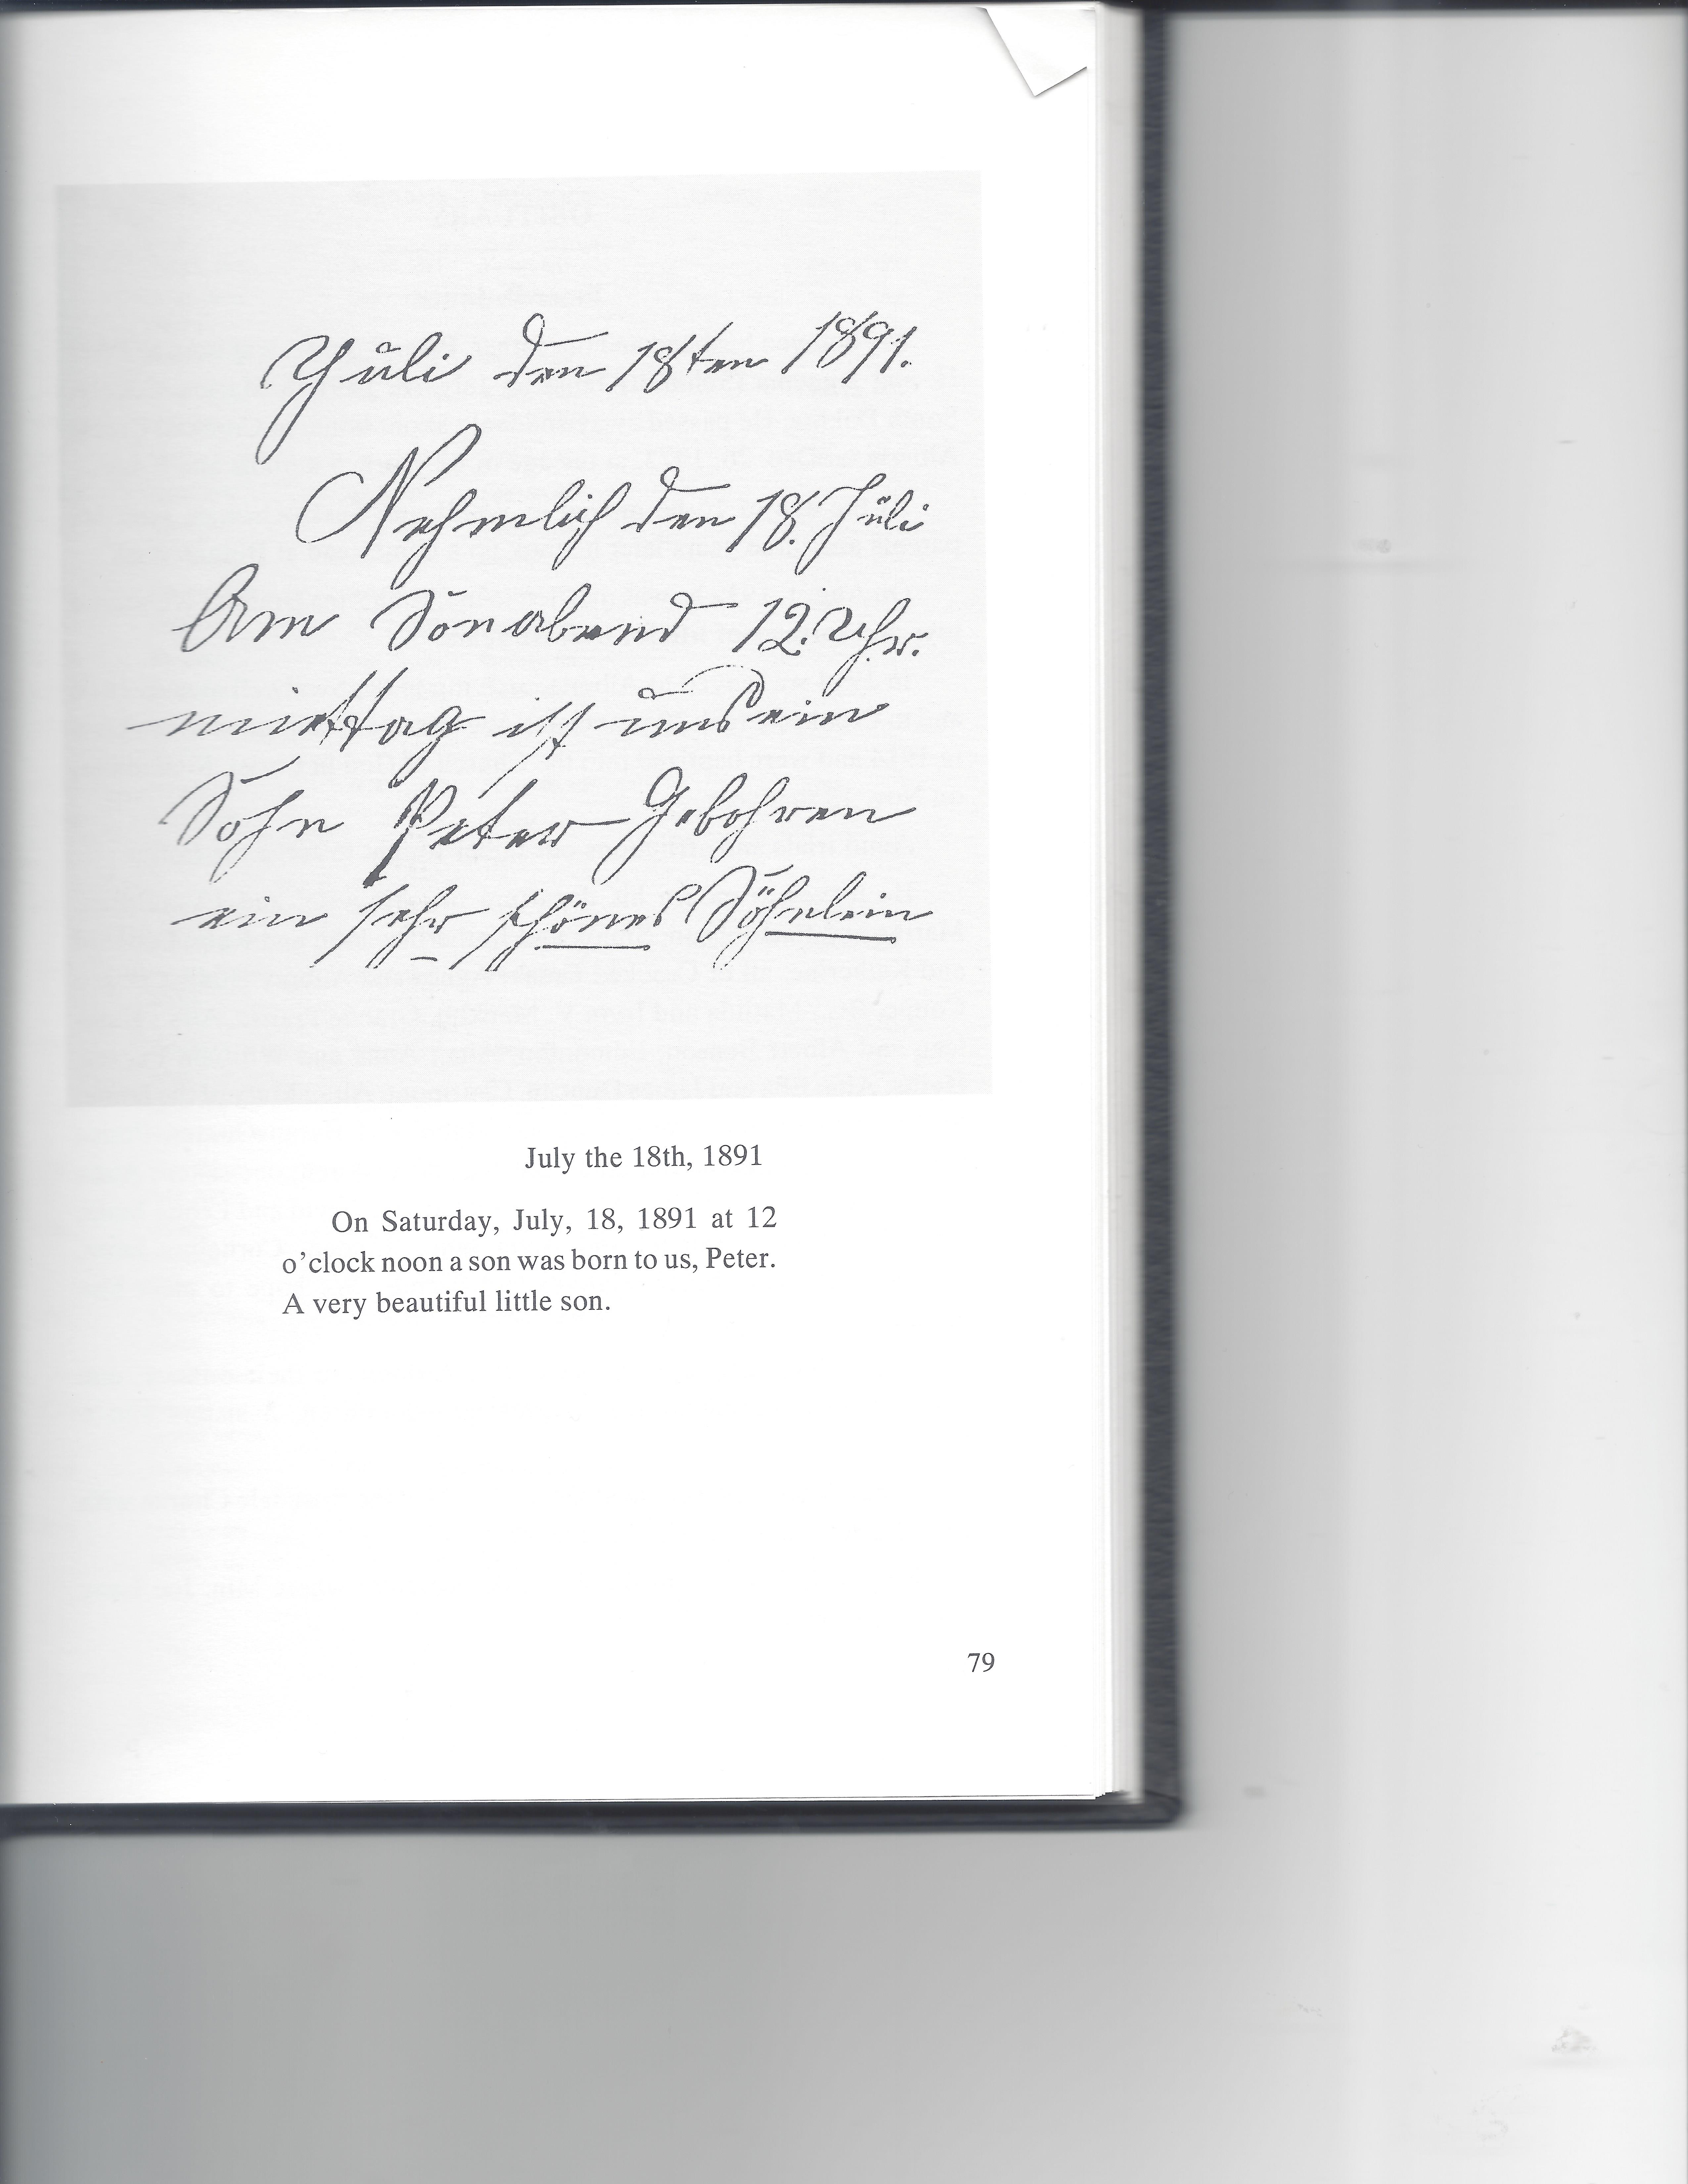 Juli den 18ten 1891.
Nehmlich den 18. Juli
Am Sonabend 12. Uhr.
miettag ist uns ein
Sohn Peter Gebohren
ein sehr schönes Söhnlein
July the 18th, 1891
On Saturday, July, 18, 1891 at 12
o'clock noon a son was born to us, Peter.
A very beautiful little son.
79